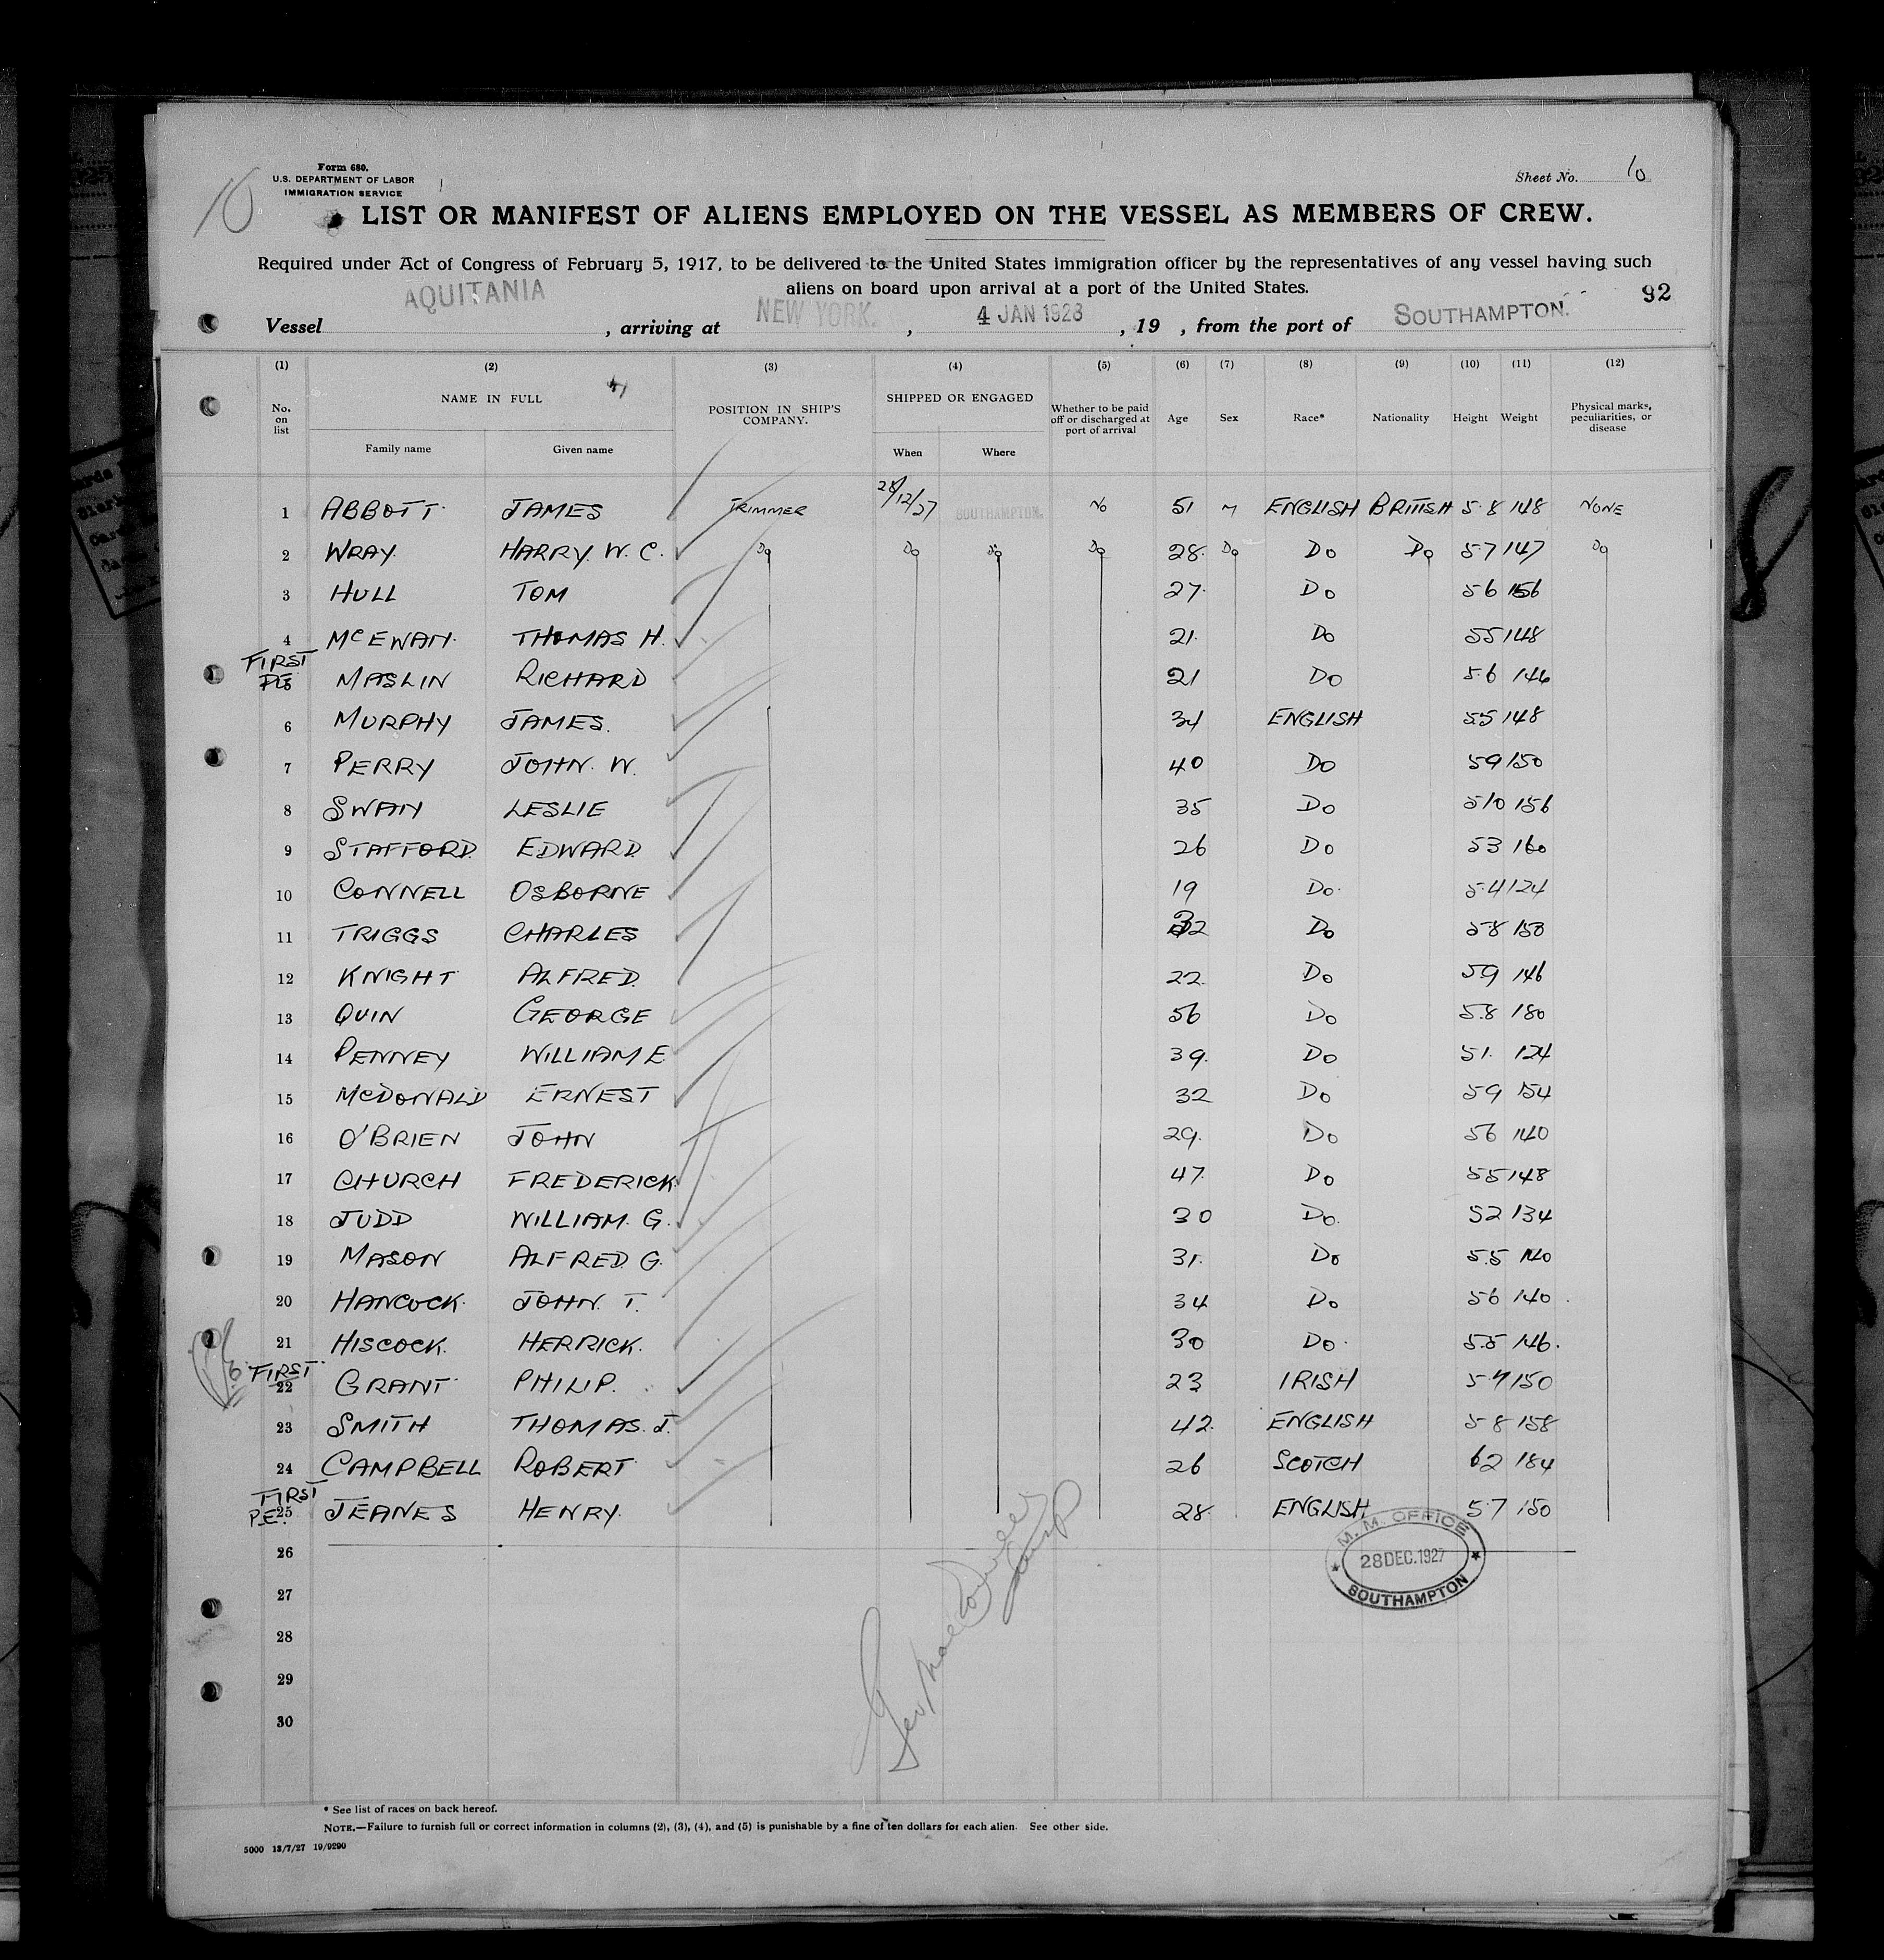 Form 680.
U.S. DEPARTMENT OF LABOR
IMMIGRATION SERVICE
10
Sheet No. 10
LIST OR MANIFEST OF ALIENS EMPLOYED ON THE VESSEL AS MEMBERS OF CREW.
Required under Act of Congress of February 5, 1917, to be delivered to the United States immigration officer by the representatives of any vessel having such
aliens on board upon arrival at a port of the United States.
92
Vessel AQUITANIA, arriving at NEW YORK., 4 JAN 1928, 19 , from the port of SOUTHAMPTON.
(1) (2) (3) (4) (5) (6) (7) (8) (9) (10) (11) (12)
No. on list NAME IN FULL POSITION IN SHIP'S COMPANY. SHIPPED OR ENGAGED Whether to be paid off or discharged at port of arrival Age Sex Race* Nationality Height Weight Physical marks, peculiarities, or disease
Family name Given name When Where
1 ABBOTT JAMES TRIMMER 28/12/27 SOUTHAMPTON. NO 51 M ENGLISH BRITISH 5.8 148 NONE
2 WRAY. HARRY. W. C. DO DO DO DO 28. DO DO DO 5.7 147 DO
3 HULL TOM 27. DO 56 156
4 McEWAN. THOMAS H. 21. DO 55 148
FIRST
MASLIN RICHARD 21 DO 5.6 146
6 MURPHY JAMES. 34 ENGLISH 55 148
7 PERRY JOHN. W. 40 DO 59 150
8 SWAN LESLIE 35 DO 510 156
9 STAFFORD. EDWARD. 26 DO 53 160
10 CONNELL OSBORNE 19 DO. 5.4 124
11 TRIGGS CHARLES 32 DO 58 150
12 KNIGHT ALFRED. 22. DO 59 146
13 QUIN GEORGE 56 DO 5.8 180
14 PENNEY WILLIAM E. 39. DO 51. 124
15 McDONALD ERNEST 32 DO 59 154
16 O'BRIEN JOHN 29. DO 56 140
17 CHURCH FREDERICK. 47. DO 55 148
18 JUDD WILLIAM. G. 30 DO. 52 134
19 MASON ALFRED. G. 31. DO 5.5 140
20 HANCOCK. JOHN. T. 34 DO 56 140
21 HISCOCK. HERRICK. 30 DO. 5.5 146.
FIRST
22 GRANT PHILIP. 23 IRISH 57 150
23 SMITH THOMAS. J. 42. ENGLISH 58 158
24 CAMPBELL ROBERT 26 SCOTCH 62 184
FIRST
P.E. 25 JEANES HENRY. 28. ENGLISH 5.7 150
26
27
28
29
30
M. M. OFFICE
28 DEC. 1927
SOUTHAMPTON
* See list of races on back hereof.
NOTE.—Failure to furnish full or correct information in columns (2), (3), (4), and (5) is punishable by a fine of ten dollars for each alien. See other side.
5000 13/7/27 19/9290